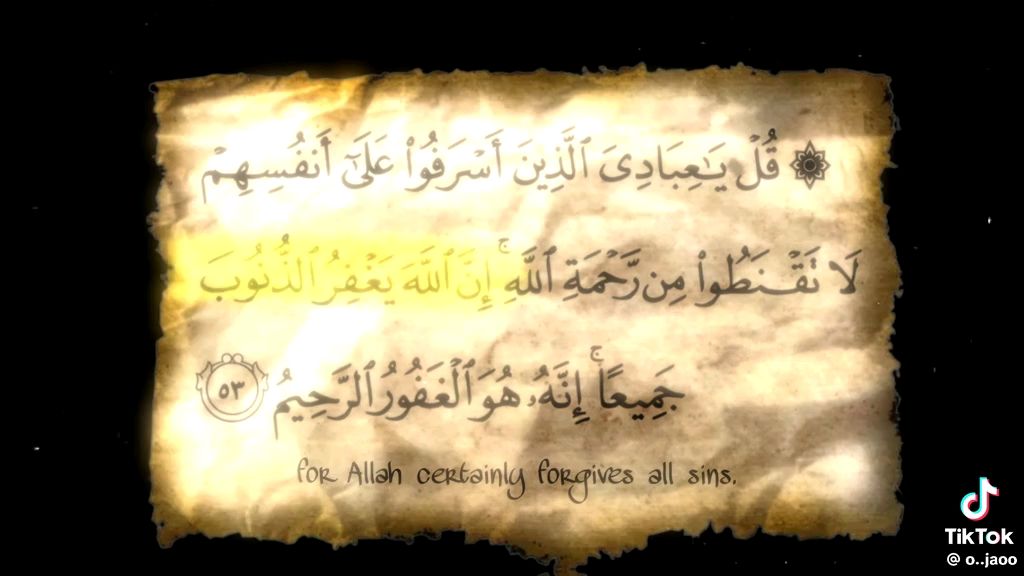 ۞ قُلْ يَـٰعِبَادِىَ ٱلَّذِينَ أَسْرَفُوا۟ عَلَىٰٓ أَنفُسِهِمْ
لَا تَقْنَطُوا۟ مِن رَّحْمَةِ ٱللَّهِ ۚ إِنَّ ٱللَّهَ يَغْفِرُ ٱلذُّنُوبَ
جَمِيعًا ۚ إِنَّهُۥ هُوَ ٱلْغَفُورُ ٱلرَّحِيمُ ٥٣
for Allah certainly forgives all sins.
TikTok
@ o..jaoo